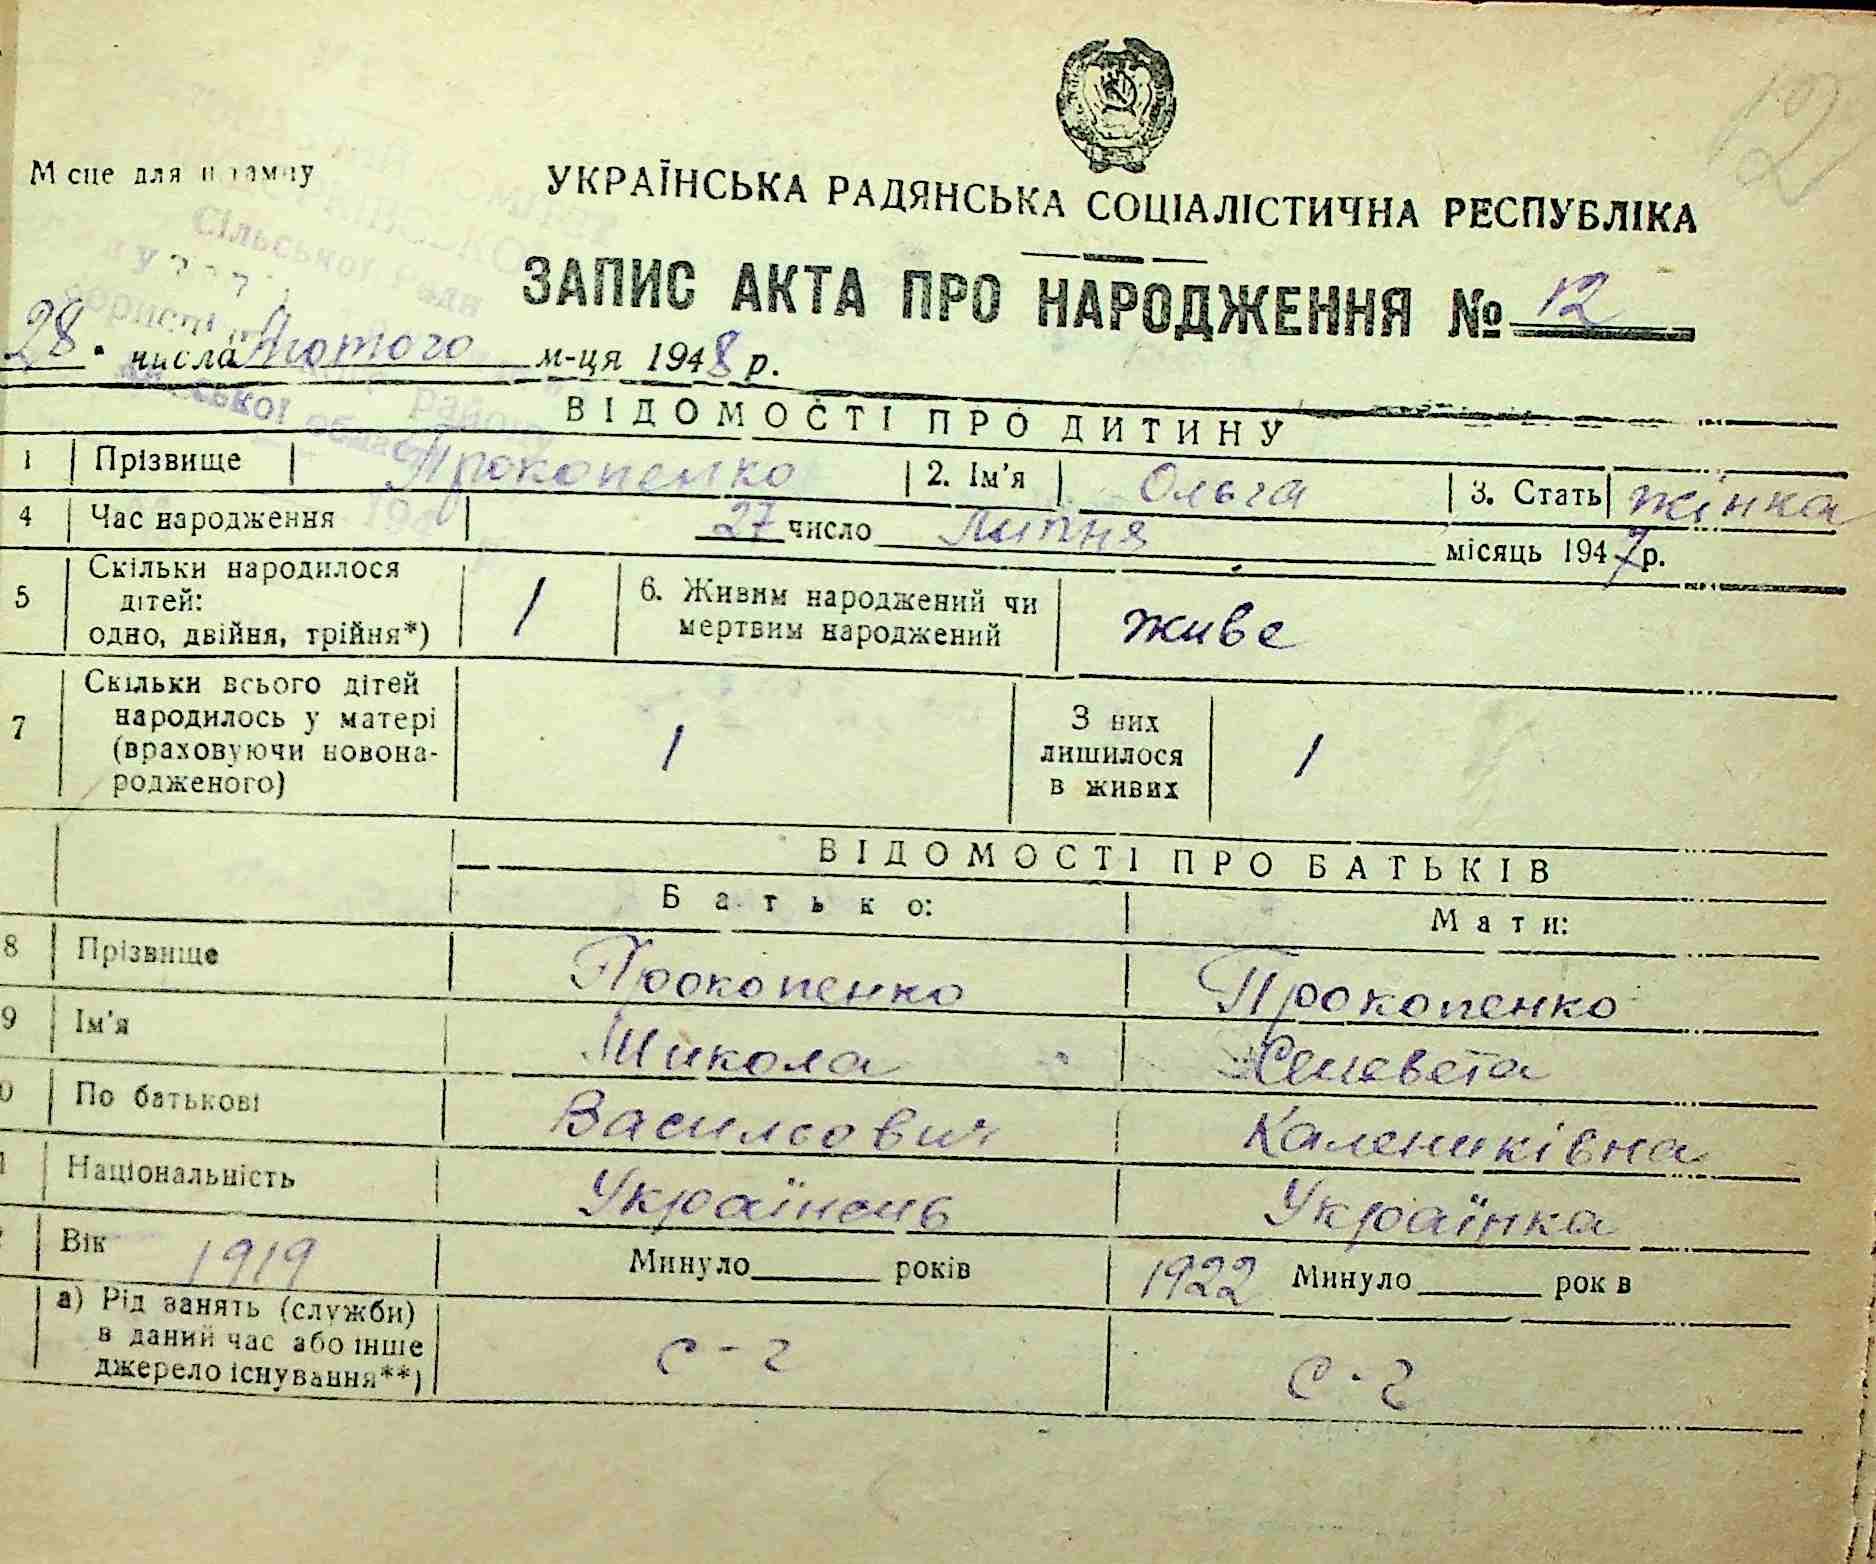 12
Місце для штампу
УКРАЇНСЬКА РАДЯНСЬКА СОЦІАЛІСТИЧНА РЕСПУБЛІКА
Сільської Ради
ЗАПИС АКТА ПРО НАРОДЖЕННЯ № 12
28 числа Лютого м-ця 1948 р.
району
ської області
ВІДОМОСТІ ПРО ДИТИНУ
1 Прізвище Прокопенко 2. Ім'я Ольга 3. Стать жінка
4 Час народження 27 число Липня місяць 1947 р.
5 Скільки народилося дітей: одно, двійня, трійня*) 1 6. Живим народжений чи мертвим народжений живе
7 Скільки всього дітей народилось у матері (враховуючи новонародженого) 1 З них лишилося в живих 1
ВІДОМОСТІ ПРО БАТЬКІВ
Батько: Мати:
8 Прізвище Прокопенко Прокопенко
9 Ім'я Микола Єлисвета
0 По батькові Василсович Калениківна
1 Національність Українець Українка
Вік 1919 Минуло ____ років 1922 Минуло ____ рок в
а) Рід занять (служби) в даний час або інше джерело існування**) с-г с-г